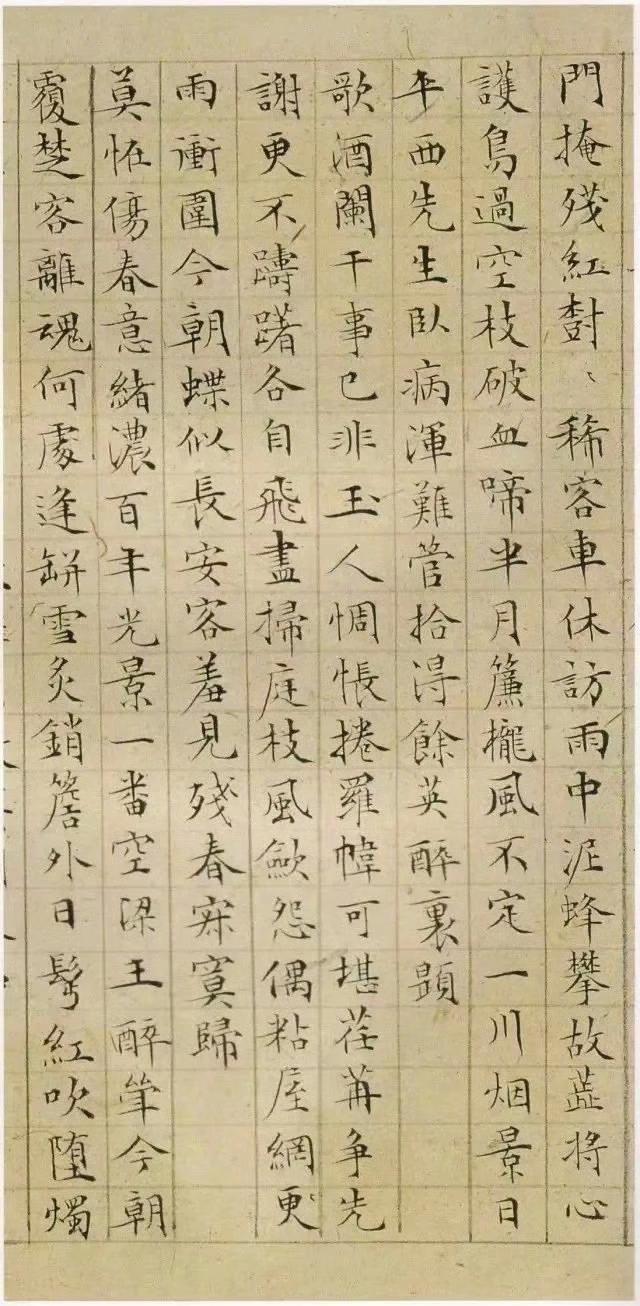 門掩殘紅樹〻稀客車休訪雨中泥蜂攀故蕋將心
護鳥過空枝破血啼半月簾櫳風不定一川烟景日
平西先生臥病渾難管拾得餘英醉裏題
歌酒闌干事已非玉人惆悵捲羅幃可堪荏苒爭先
謝更不躊躇各自飛盡掃庭枝風歛怨偶粘屋網更
雨衝圍今朝蝶似長安客羞見殘春寂寞歸
莫恠傷春意緒濃百年光景一番空梁王醉筆今朝
覆楚客離魂何處逢缾雪炙銷簷外日髩紅吹墮燭